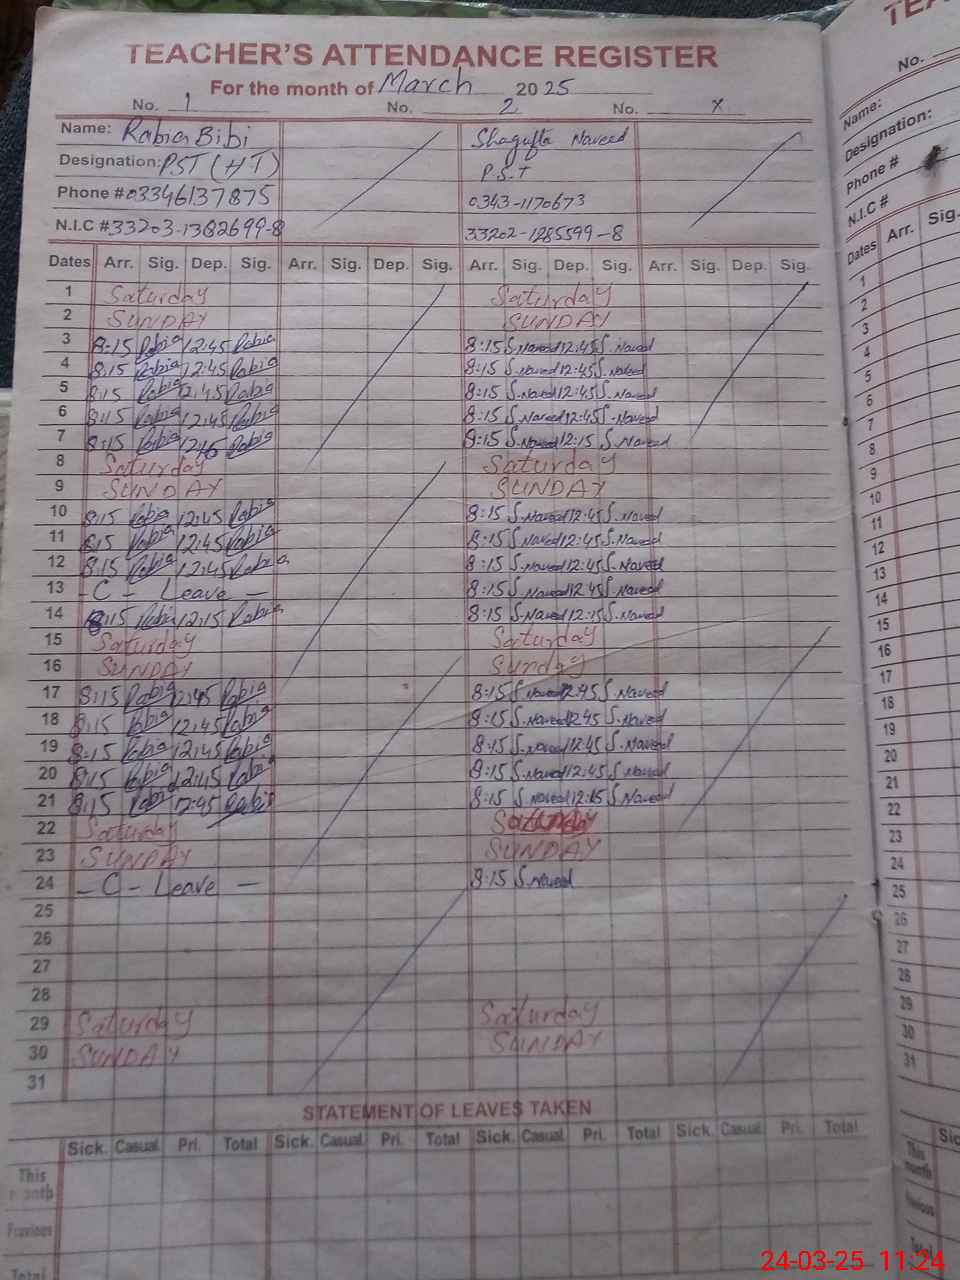 TEACHER'S ATTENDANCE REGISTER
For the month of March 2025
No. 1 No. 2 No. X
Name: Rabia Bibi Shagufta Naveed
Designation: PST (HT) P.S.T
Phone # 03346137875 0343-1170673
N.I.C # 33203-1382699-8 33202-1285599-8
Dates Arr. Sig. Dep. Sig. Arr. Sig. Dep. Sig. Arr. Sig. Dep. Sig. Arr. Sig. Dep. Sig.
1 Saturday Saturday
2 SUNDAY SUNDAY
3 8:15 Rabia 12:45 Rabia 8:15 S.Naveed 12:45 S.Naveed
4 8:15 Rabia 12:45 Rabia 8:15 S.Naveed 12:45 S.Naveed
5 8:15 Rabia 12:45 Rabia 8:15 S.Naveed 12:45 S.Naveed
6 8:15 Rabia 12:45 Rabia 8:15 S.Naveed 12:45 S.Naveed
7 8:15 Rabia Rabia 8:15 S.Naveed 12:15 S.Naveed
8 Saturday Saturday
9 SUNDAY SUNDAY
10 8:15 Rabia 12:45 Rabia 8:15 S.Naveed 12:45 S.Naveed
11 8:15 Rabia 12:45 Rabia 8:15 S.Naveed 12:45 S.Naveed
12 8:15 Rabia 12:45 Rabia 8:15 S.Naveed 12:45 S.Naveed
13 - C - Leave - 8:15 S.Naveed 12:45 S.Naveed
14 8:15 Rabia 12:15 Rabia 8:15 S.Naveed 12:15 S.Naveed
15 Saturday Saturday
16 SUNDAY Sunday
17 8:15 Rabia 12:45 Rabia 8:15 S.Naveed 12:45 S.Naveed
18 8:15 Rabia 12:45 Rabia 8:15 S.Naveed 12:45 S.Naveed
19 8:15 Rabia 12:45 Rabia 8:15 S.Naveed 12:45 S.Naveed
20 8:15 Rabia 12:45 Rabia 8:15 S.Naveed 12:45 S.Naveed
21 8:15 Rabia 12:45 Rabia 8:15 S.Naveed S.Naveed
22 Saturday Saturday
23 SUNDAY SUNDAY
24 - C - Leave - 8:15 S.Naveed
25
26
27
28
29 Saturday Saturday
30 SUNDAY SUNDAY
31
STATEMENT OF LEAVES TAKEN
Sick. Casual Pri. Total Sick. Casual. Pri. Total Sick. Casual. Pri. Total Sick. Casual. Pri. Total
This month
Previous
Total
No.
Name:
Designation:
Phone #
N.I.C #
Dates Arr. Sig.
1
2
3
4
5
6
7
8
9
10
11
12
13
14
15
16
17
18
19
20
21
22
23
24
25
26
27
28
29
30
31
This month
Total
24-03-25 11:24